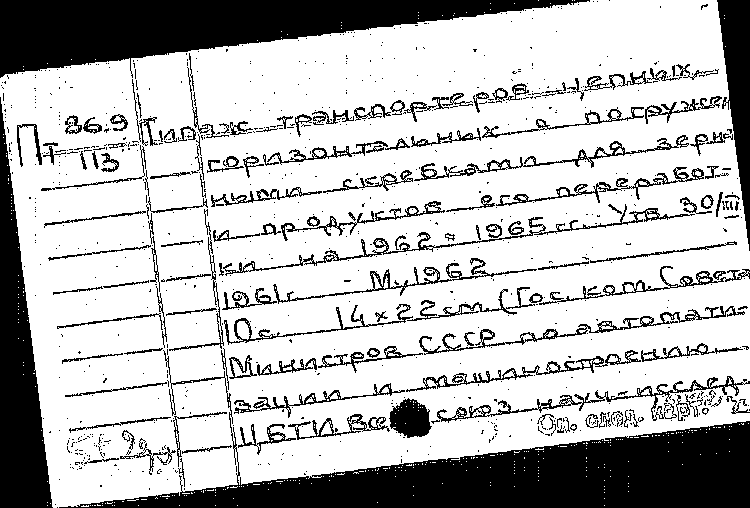 Пт 86.9 Типаж транспортеров цепных,
113 горизонтальных с погружен
ными скребками для зерна
и продуктов его переработ-
ки на 1962-1965 гг. Утв. 30/III
1961г. - М., 1962
10с. 14×22 см. (Гос. ком. Совета
Министров СССР по автомати-
зации и машиностроению.
ЦБТИ. Все союз науч-исслед-
Оп. след. карт.